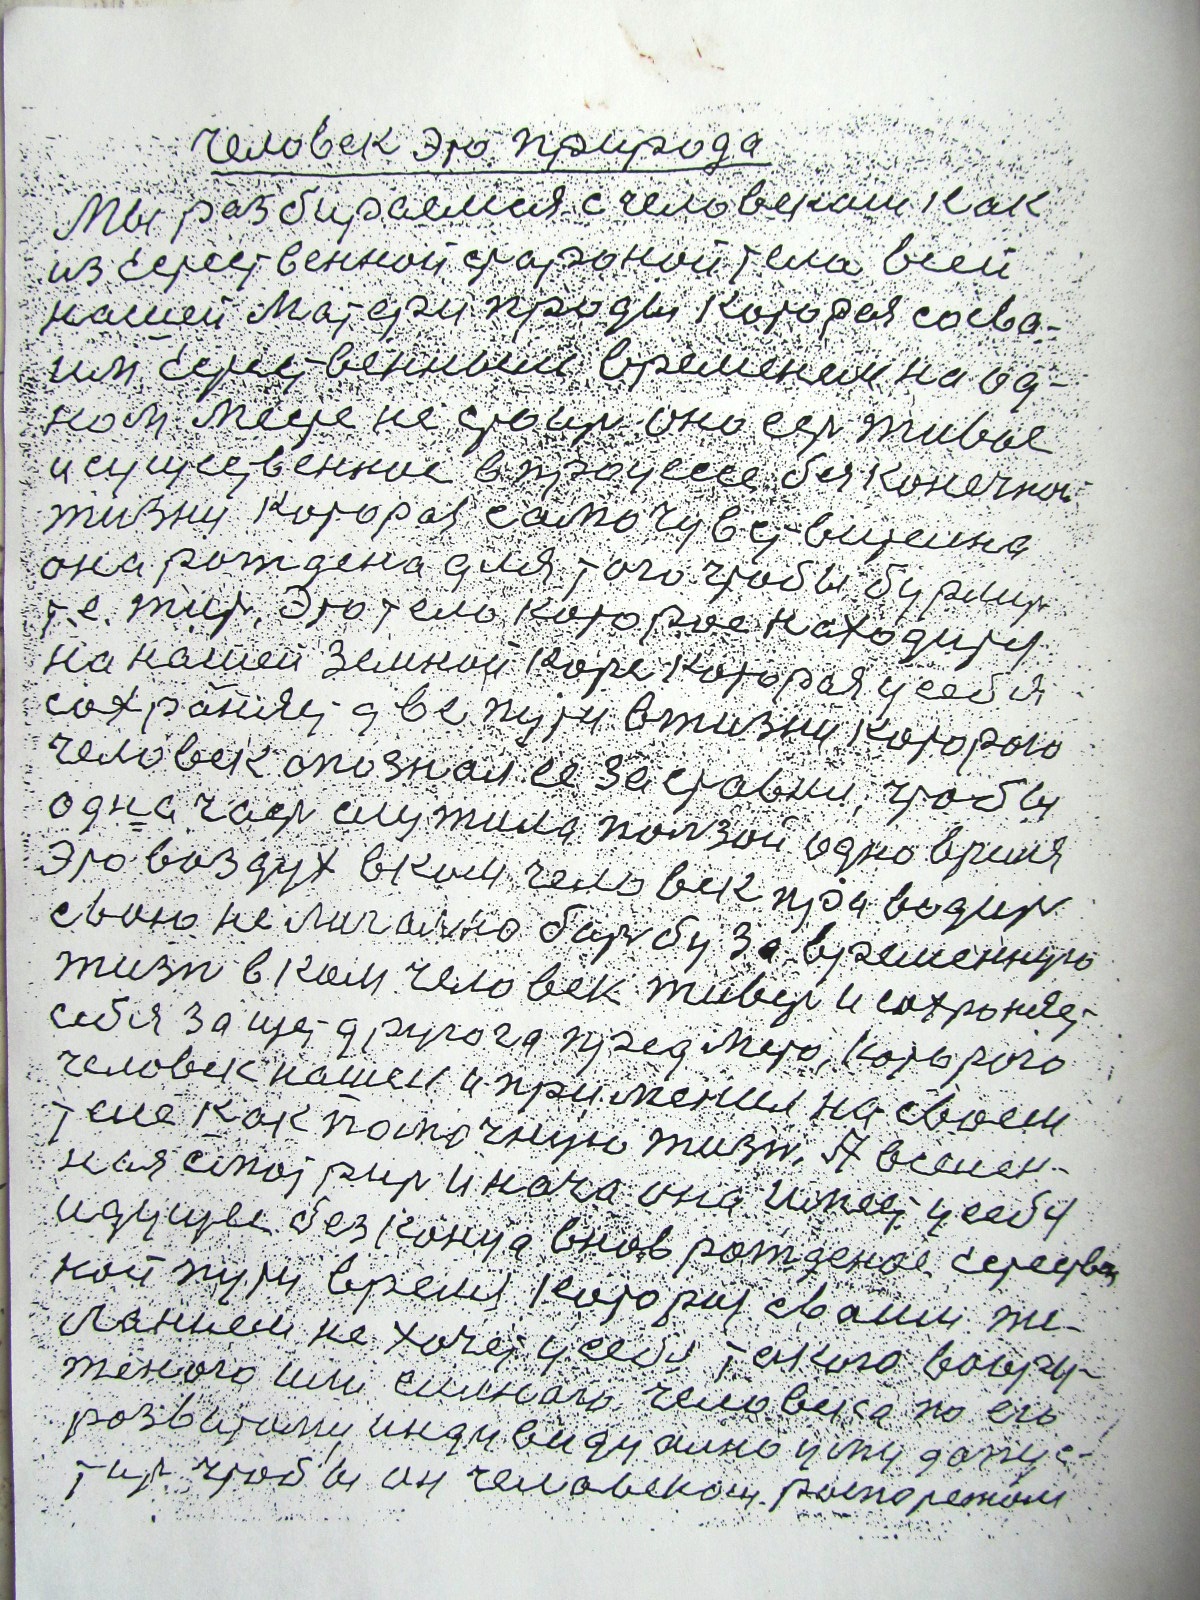 Человек это природа
Мы разбираемся с человеком как
из естественной стороной тела всей
нашей Матери проды которая сосва-
им естественным временем на од-
ном месте не стоит оно есть живое
и существенное в процессе безконечной
жизни которая самочувствителна
она рождена для того чтобы бурлит
т.е. жит. Это тело которое находится
на нашей земной коре которая у себя
сохраняет две пути в жизни которого
человек опознал ее заставил, чтобы
одна част служила ползой одно время
Это воздух в ком человек праводит
свою нелигално барбу за временную
жизн в ком человек живет и сохроняет
себя защет другога предмета, которого
человек нашел и применил на своем
теле как помочную жизн. А вселен-
ная смотрит иначе она имеет у себя
идущее без конца внов рожденое естествен
ной пути время которая сваим же-
ланием не хочет у себя такого воору-
женого или силного человека по его
розвитому индувидуално уму допус-
тит чтобы он человеком роспорежал